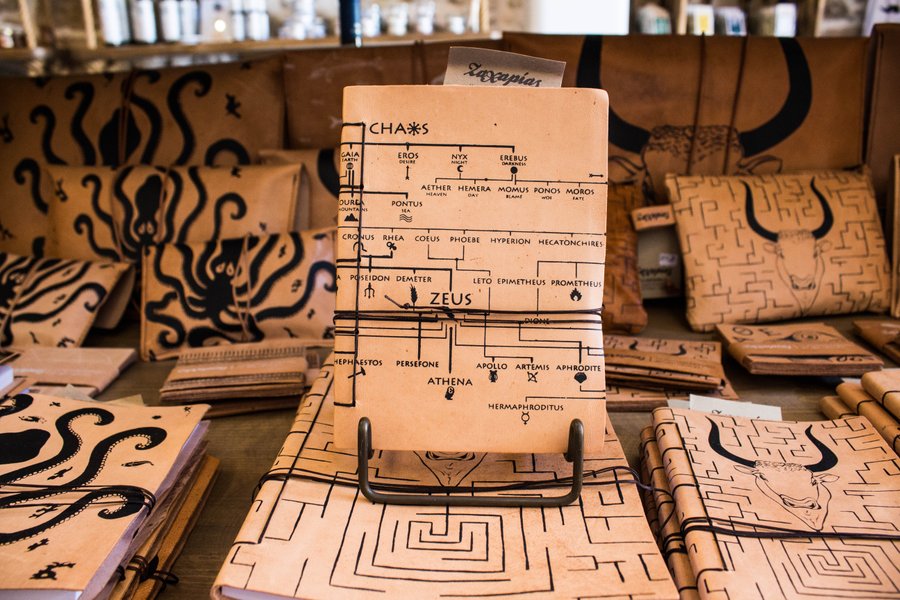 Ζαχαρίας
CHAOS
GAIA EROS NYX EREBUS
EARTH DESIRE NIGHT DARKNESS
AETHER HEMERA MOMUS PONOS MOROS
HEAVEN DAY BLAME WOE FATE
OUREA PONTUS
MOUNTAINS SEA
CRONUS RHEA COEUS PHOEBE HYPERION HECATONCHIRES
POSEIDON DEMETER LETO EPIMETHEUS PROMETHEUS
ZEUS
DIONE
HEPHAESTOS PERSEFONE APOLLO ARTEMIS APHRODITE
ATHENA
HERMAPHRODITUS